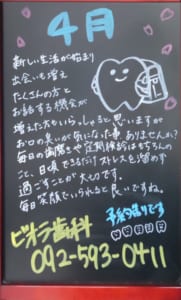 4月
新しい生活が始まり
出会いも増え
たくさんの方と
お話する機会が
増えた方もいらっしゃると思いますが
お口の臭いが気になった事、ありませんか?
毎日の歯磨きや定期検診はもちろんの
こと、日頃できるだけストレスも溜めず
過ごすことが大切です。
毎日笑顔でいられると良いですね。
予約制です
ビオラ歯科
092-593-0411